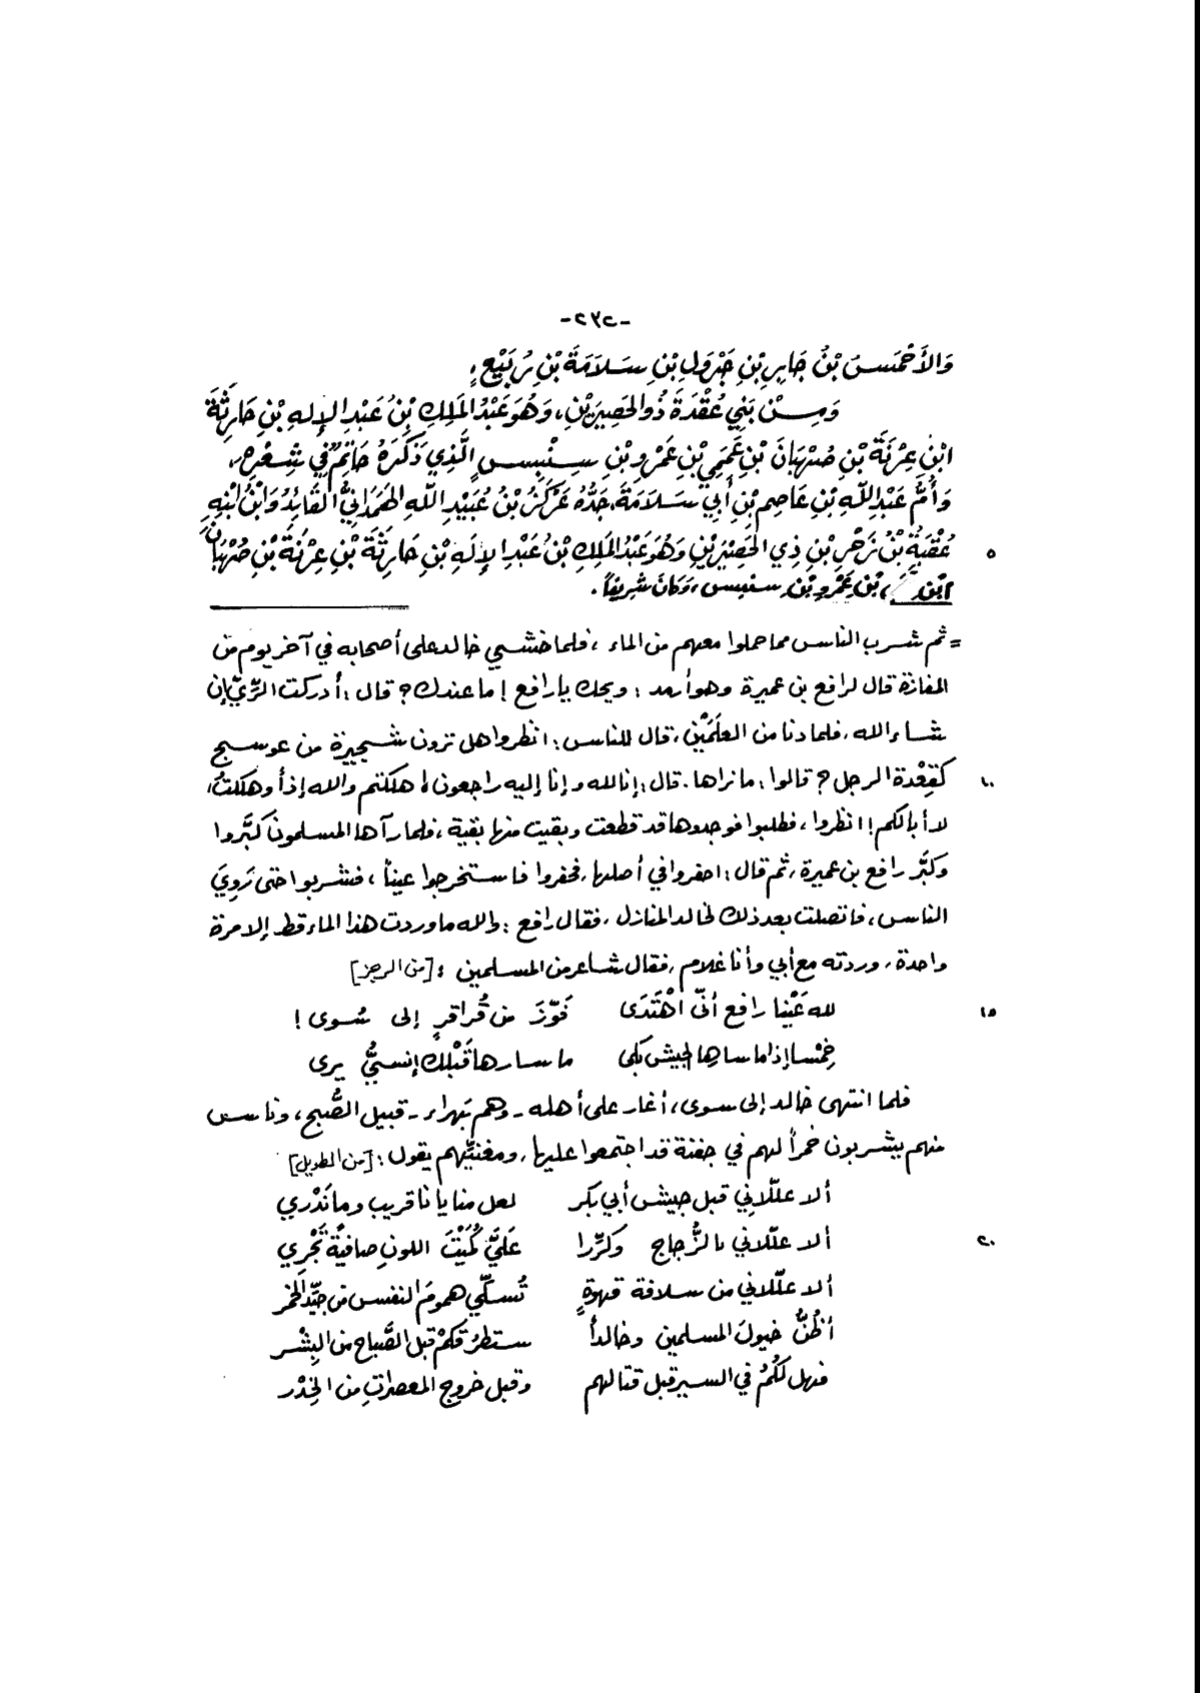 -٢٧٢-
وَالأَحْمَسَ بْنُ جَابِرِ بْنِ جَرْوَلِ بْنِ سَلَامَةَ بْنِ رُبَيْعٍ؛
وَمِنْ بَنِي عُقْدَةَ ذُو الحَصِيرَيْنِ، وَهُوَ عَبْدُ المَلِكِ بْنُ عَبْدِ الإِلهِ بْنِ حَارِثَةَ
ابْنِ عِرْنَةَ بْنِ صُهْبَانَ بْنِ عَمَمِيِّ بْنِ عَمْرِو بْنِ سِنْبِسٍ الَّذِي ذَكَرَهُ حَاتِمٌ فِي شِعْرِهِ،
وَأُمُّ عَبْدِ اللهِ بْنِ عَاصِمِ بْنِ أَبِي سَلَامَةَ، جَدُّهُ عَرْكَزُ بْنُ عُبَيْدِ اللهِ الهَمَدَانِيُّ القَائِدُ وَابْنُ ابْنِهِ
٥ عُقْبَةُ بْنُ زَحْرِ بْنِ ذِي الحَصِيرَيْنِ وَهُوَ عَبْدُ المَلِكِ بْنُ عَبْدِ الإِلَهِ بْنِ حَارِثَةَ بْنِ عِرْنَةَ بْنِ صُهْبَانَ
ابْنِ بْنِ عَمْرِو بْنِ سنبس، وَكَانَ شَرِيفاً.
= ثم شرب الناس مما حملوا معهم من الماء، فلما خشي خالد على أصحابه في آخر يوم من
المفازة قال لرافع بن عميرة وهو أرمد: ويحك يا رافع! ما عندك؟ قال: أدركت الرِّيّ إن
شاء الله، فلما دنا من العلَمَيْن، قال للناس: انظروا هل تزون شجيرة من عوسج
١٠ كَقِعْدة الرجل؟ قالوا: ما نراها. قال: إنا لله وإنا إليه راجعون! هلكتم والله إذاً وهلكتُ،
لا أبا لكم!! انظروا، فطلبوا فوجدوها قد قطعت وبقيت منها بقية، فلما رآها المسلمون كبَّروا
وكبَّر رافع بن عميرة، ثم قال: احفروا في أصلها، فحفروا فاستخرجوا عيناً، فشربوا حتى رَوِيَ
الناس، فاتصلت بعد ذلك لخالد المنازل، فقال رافع: والله ما وردت هذا الماء قط إلا مرة
واحدة، وردته مع أبي وأنا غلام، فقال شاعر من المسلمين: [من الرجز]
١٥ لله عَيْنا رافع أنّى اهْتَدَى فَوّزَ من قُراقرٍ إلى سُوى!
خِمْساً إذا ما سارها الجيش بكى ما سارها قَبْلك إنسيٌّ يرى
فلما انتهى خالد إلى سوى، أغار على أهله - وهم بَهراء - قبيل الصُّبح، وناس
منهم يشربون خمراً لهم في جفنة قد اجتمعوا عليها، ومغنّيهم يقول: [من الطويل]
ألا علّلانِي قبل جيش أبي بكر لعل منايانا قريب وما نَدْري
٢٠ ألا علّلاني بالزُّجاج وكرِّرا عَلَيَّ كُمَيْتَ اللونِ صافيةً تَجْرِي
ألا علّلاني من سلافة قهوةٍ تُسلّي همومَ النفس من جيِّد الخمر
أظُنُّ خيولَ المسلمين وخالداً ستطرُقكمْ قبل الصَّباح من البِشْر
فهل لكُمُ في السير قبل قتالهم وقبل خروج المعصراتِ من الخِدْر